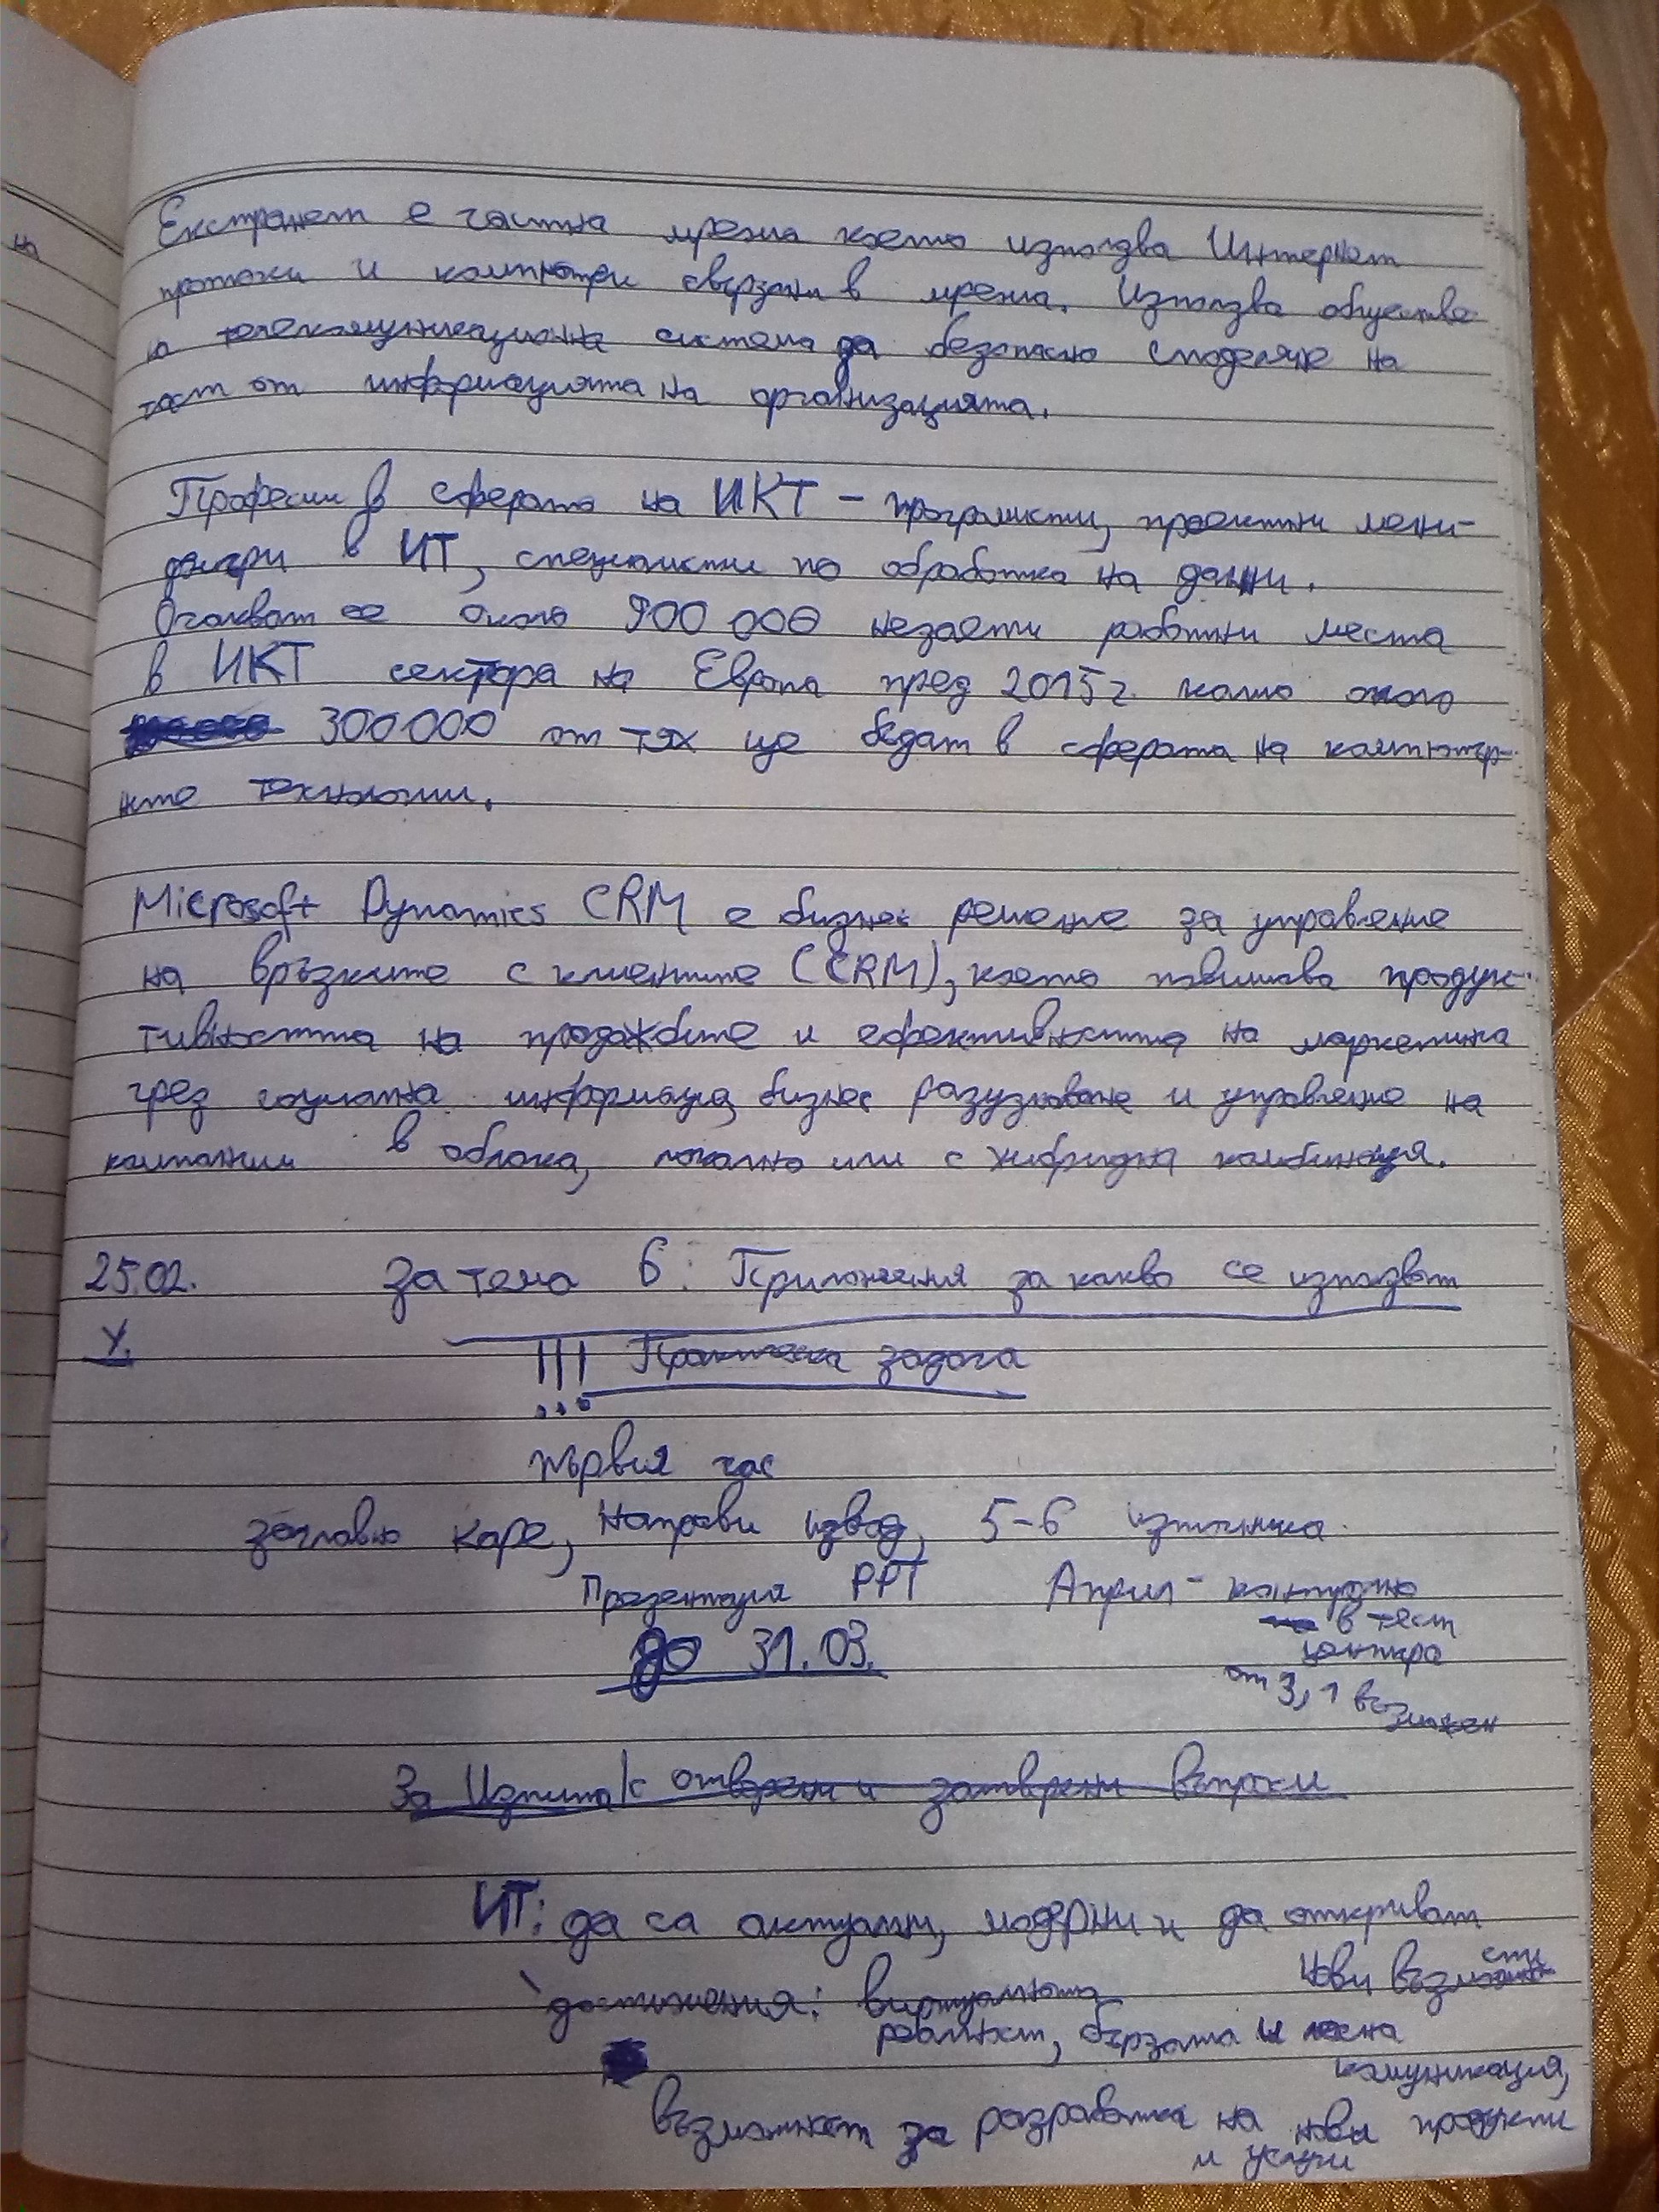 на
Екстранет е частна мрежа която използва Интернет
протоки и компютри свързани в мрежа. Използва обществе
на телекомуникационна система да безопасно споделяне на
част от информацията на организацията.
Професии в сферата на ИКТ – програмисти, проектни мени-
джъри в ИТ, специалисти по обработка на данни.
Очакват се около 900 000 незаети работни места
в ИКТ сектора на Европа пред 2015г. като около
300000 от тях ще бъдат в сферата на компютър-
ните технологии.
Microsoft Dynamics CRM е бизнес решение за управление
на връзките с клиентите (CRM), което повишава продук-
тивността на продажбите и ефективността на маркетинга
чрез социална информация, бизнес разузнаване и управление на
компании в облака, локално или с хибридна комбинация.
25.02. За тема 6: Приложения за какво се използват
У. !!! Практическа задача
първия час
заглавно каре, Направи извод, 5-6 източника
Презентация PPT Април - контролно
в тест
центъра
до 31.03.
от 3, 1 възможен
За Изпита/с отворени и затворени въпроси
ИТ: да са актуални, модерни и да откриват
нови възможности
достижения: виртуалната
реалност, бързата и лесна
комуникация,
възможност за разработка на нови продукти
и услуги